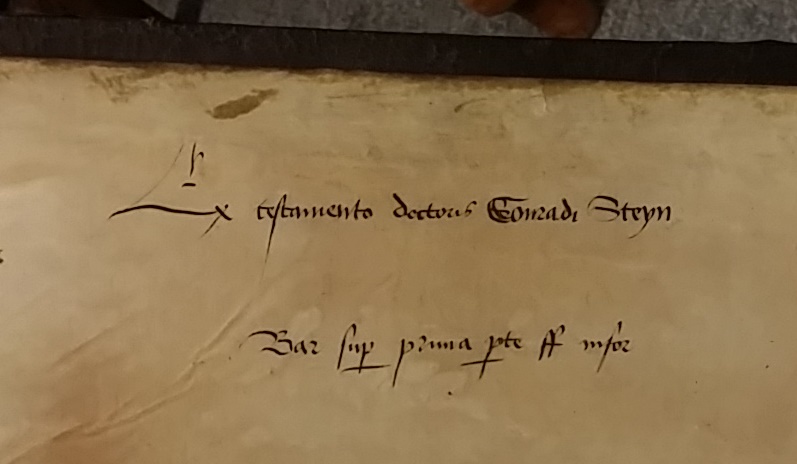 Ex testamento doctoris Conradi Steyn
Bar sup prima pte ff infor